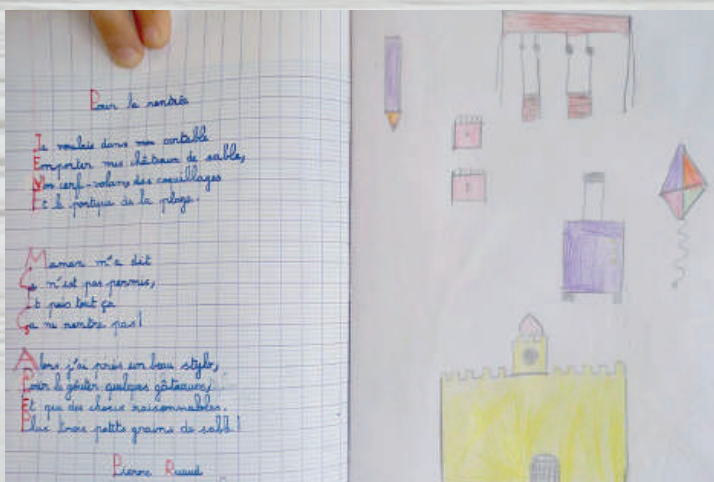 Pour la rentrée
Je voulais dans mon cartable
Emporter mes châteaux de sable,
Mon cerf-volant des coquillages
Et le portique de la plage.
Maman m'a dit
Ce n'est pas permis,
Et puis tout ça
Ça ne rentre pas!
Alors j'ai pris un beau stylo,
Pour le goûter quelques gâteaux,
Et que des choses raisonnables.
Plus trois petits grains de sable!
Pierre Ruaud